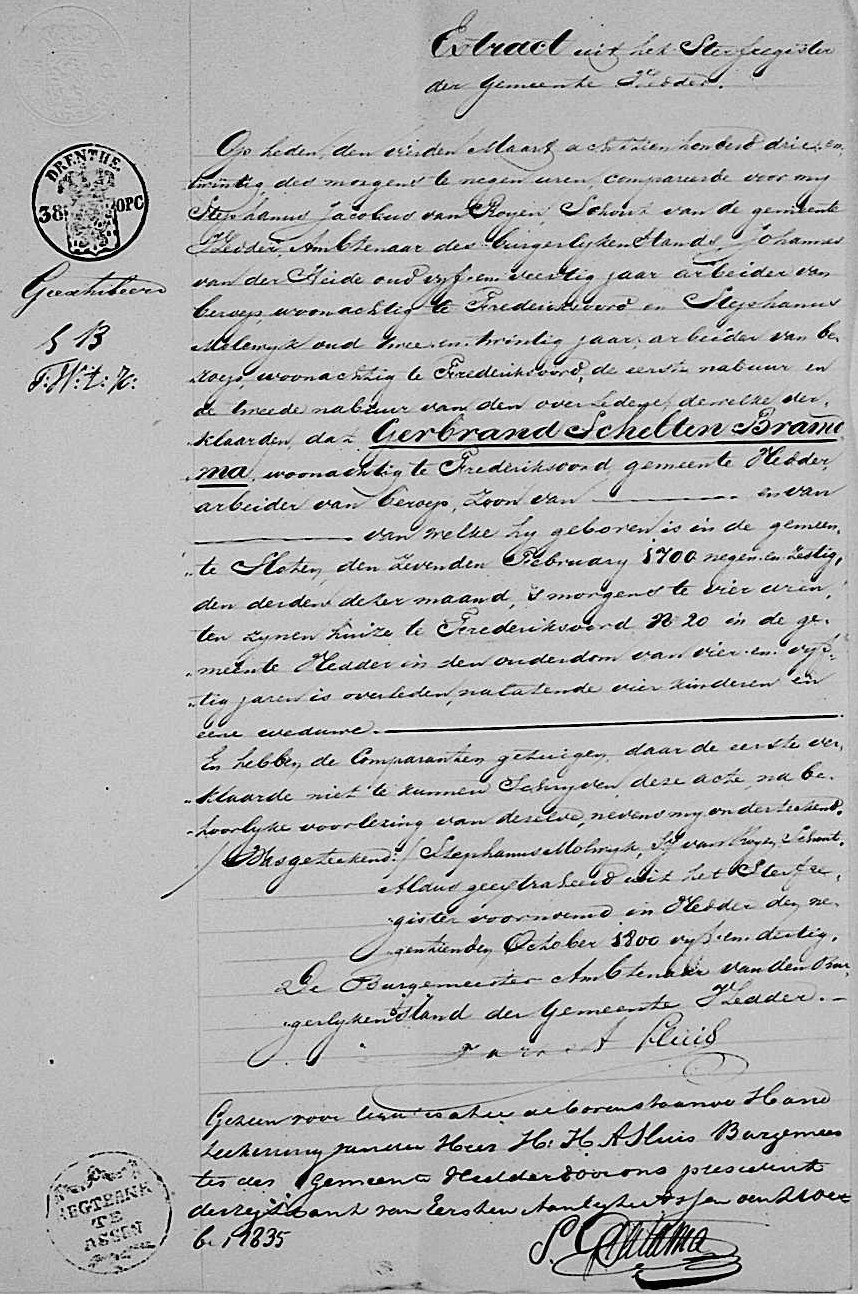 Extract uit het Sterfregister
der Gemeente Vledder.
Op heden, den vierden Maart achttien honderd drie en
twintig, des morgens te negen uren, compareerde voor my
Stephanus Jacobus van Royen, Schout van de gemeente
Vledder, Ambtenaar des burgerlyken Stands, Johannes
van der Heide oud vyf en veertig jaar arbeider van
beroep, woonachtig te Frederiksoord en Stephanus
Molewyk oud twee en twintig jaar, arbeider van be-
roep, woonachtig te Frederiksoord, de eerste nabuur en
de tweede nabuur van den overledene, dewelke ver-
klaarden, dat Gerbrand Schelten Bram
ma, woonachtig te Frederiksoord, gemeente Vledder,
arbeider van beroep, zoon van en van
van welke hy geboren is in de gemeen-
te Sloten, den zevenden February 1700 negen en zestig,
den derden dezer maand, 's morgens te vier uren,
ten zynen huize te Frederiksoord No 20 in de ge-
meente Vledder in den ouderdom van vier en vyf-
tig jaren is overleden, nalatende vier kinderen en
eene weduwe.
En hebben de Comparanten getuigen, daar de eerste ver-
klaarde niet te kunnen Schryven, deze acte, na be-
hoorlyke voorlezing van dezelve, nevens my onderteekend.
/Was geteekend:/ Stephanus Molewyk, SJ van Royen, Schout.
Aldus geextraheerd uit het Sterfre-
gister voornoemd in Vledder den ne-
gentienden October 1800 vyf en dertig.
De Burgemeester Ambtenaar van den Bur-
gerlyken Stand der Gemeente Vledder.
Sluis
Gezien voor legalisatie de bovenstaande Hand
teekening van den Heer H: H A Sluis Burgemees
ter der Gemeente Vledder door ons president
der regtbank van Eersten Aanleg te Assen den Octo
b. 1835
DRENTHE
38 OPC
Geexhibeerd
§ 13
REGTBANK
TE
ASSEN